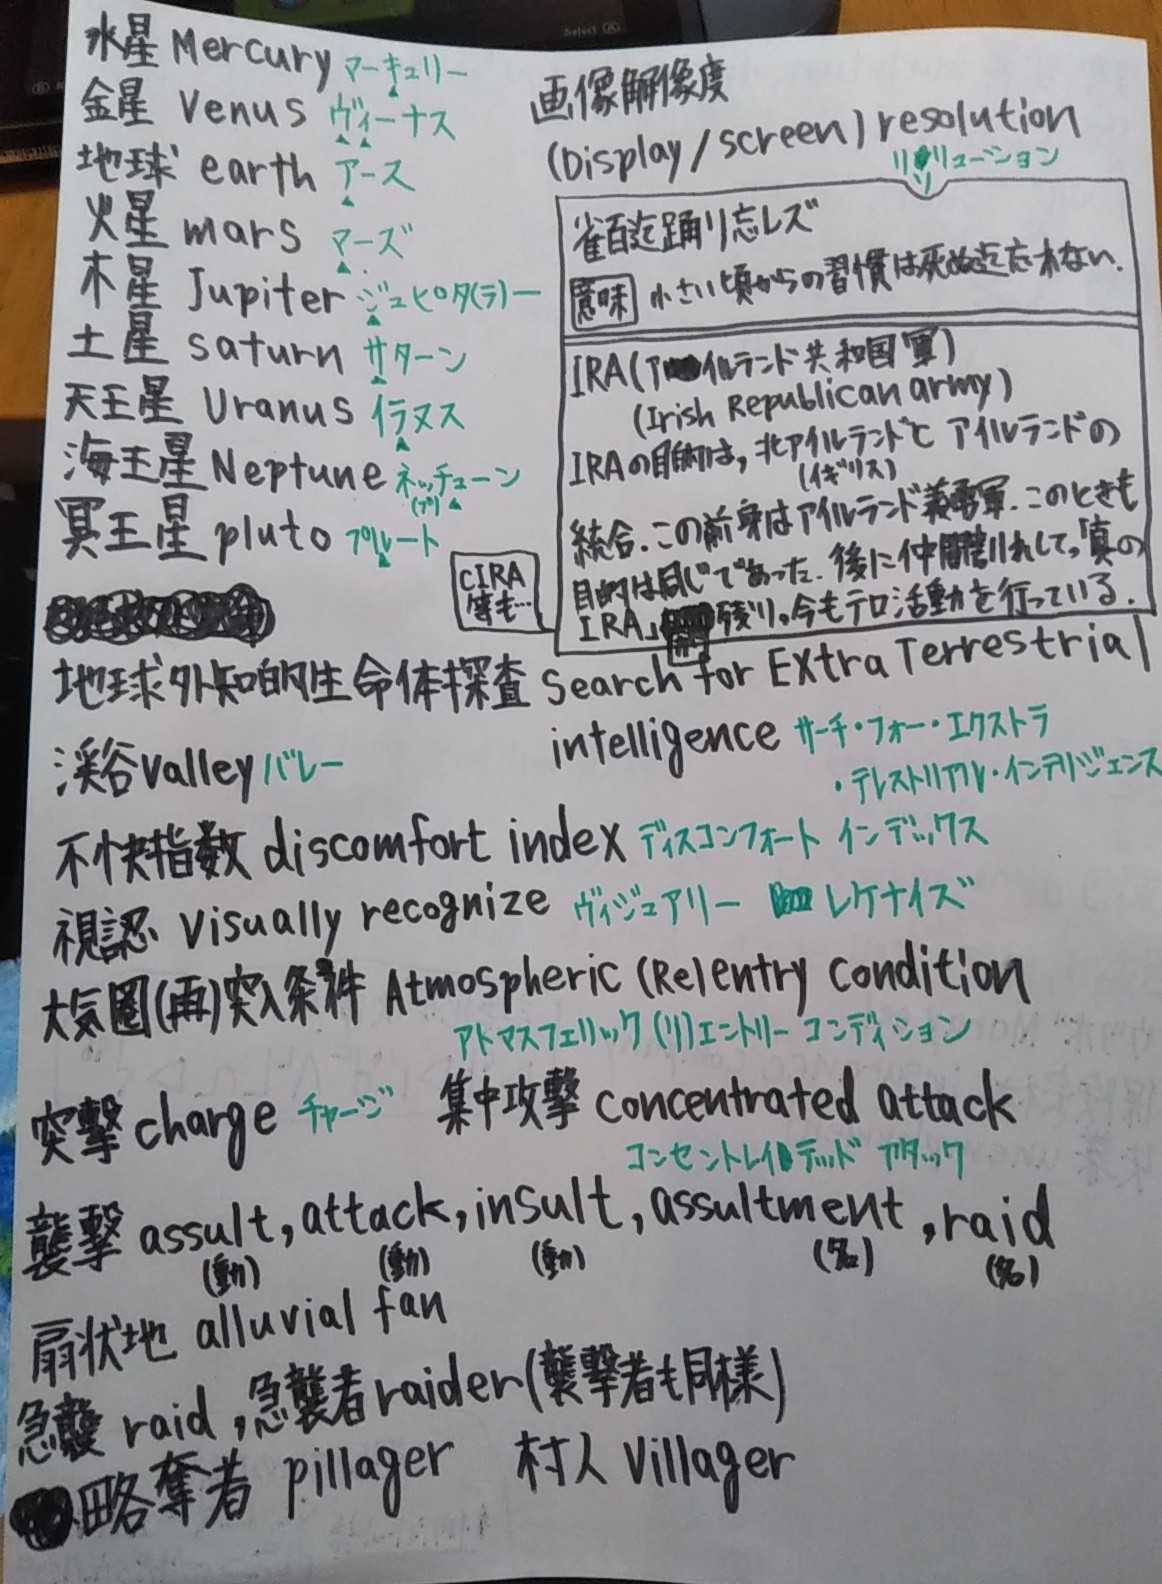 水星 Mercury マーキュリー
金星 Venus ヴィーナス
地球 earth アース
火星 mars マーズ
木星 Jupiter ジュピタ(ラ)ー
土星 saturn サターン
天王星 Uranus イラヌス
海王星 Neptune ネッチューン
(プ)
冥王星 pluto プルート
画像解像度
(Display/screen) resolution
リソリューション
雀百迄踊り忘レズ
意味 小さい頃からの習慣は死ぬ迄忘れない.
IRA(アイルランド共和国軍)
(Irish Republican army)
IRAの目的は,北アイルランドとアイルランドの
(イギリス)
統合.この前身はアイルランド義勇軍.このときも
目的は同じであった.後に仲間割れして,「真の
IRA」残り。今もテロ活動を行っている.
CIRA
等も…
地球外知的生命体探査 Search for Extra Terrestrial
intelligence サーチ・フォー・エクストラ
・テレストリアル・インテリジェンス
渓谷 valley バレー
不快指数 discomfort index ディスコンフォート インデックス
視認 visually recognize ヴィジュアリー レケナイズ
大気圏(再)突入条件 Atmospheric (Re)entry condition
アトマスフェリック (リ)エントリー コンディション
突撃 charge チャージ 集中攻撃 concentrated attack
コンセントレイテッド アタック
襲撃 assult, attack, insult, assultment, raid
(動) (動) (動) (名) (名)
扇状地 alluvial fan
急襲 raid, 急襲者 raider(襲撃者も同様)
略奪者 pillager 村人 villager